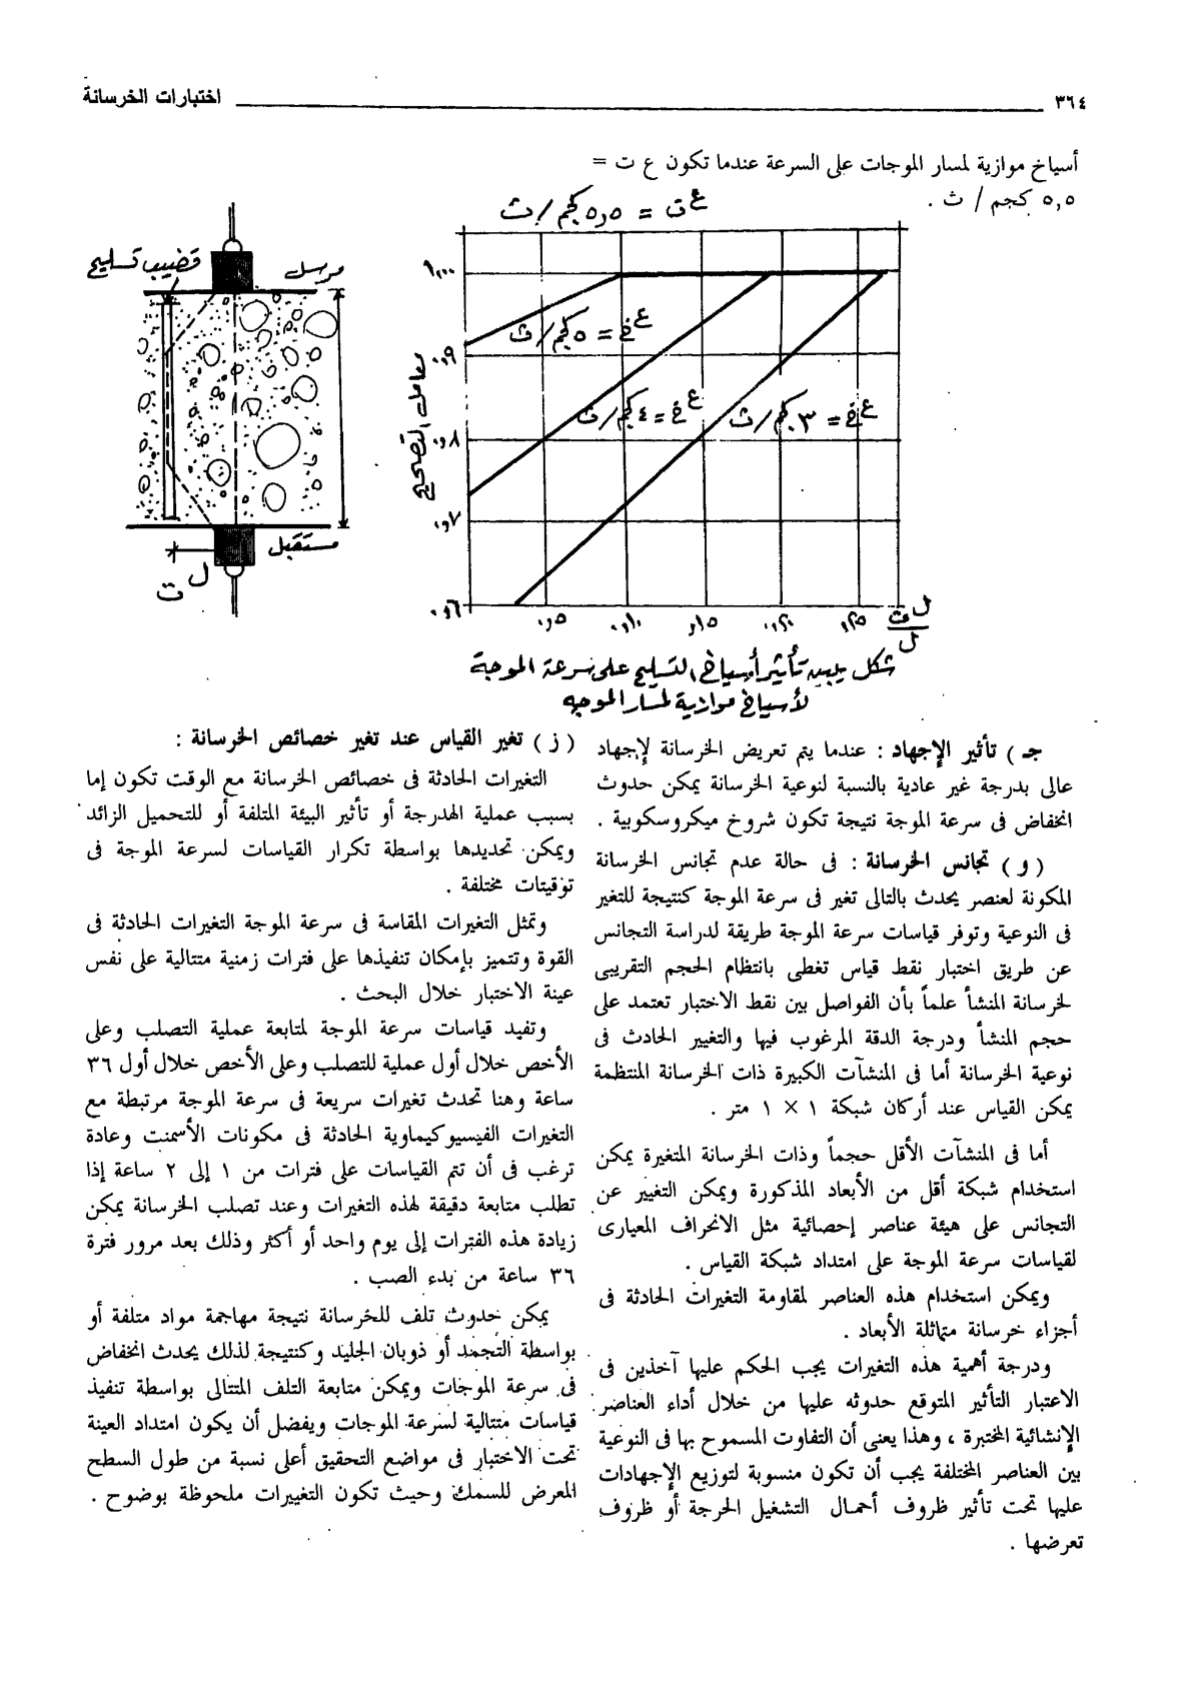 ٣٦٤
اختبارات الخرسانة
أسياخ موازية لمسار الموجات على السرعة عندما تكون ع ت =
٥,٥ كجم / ث .
ع ت = ٥,٥ كجم/ث
مرسل
قضيب تسليح
مستقبل
ل ت
معامل التصحيح
١,٠٠
٠,٩
٠,٨
٠,٧
٠,٦
ع خ = ٥ كجم/ث
ع خ = ٤ كجم/ث
ع خ = ٣ كجم/ث
٠,٠٥ ٠,١٠ ٠,١٥ ٠,٢٠ ٠,٢٥
ل ت
ل
شكل يبين تأثير أسياخ التسليح على سرعة الموجة
لأسياخ موازية لمسار الموجه
جـ ) تأثير الإجهاد : عندما يتم تعريض الخرسانة لإجهاد
عالى بدرجة غير عادية بالنسبة لنوعية الخرسانة يمكن حدوث
انخفاض فى سرعة الموجة نتيجة تكون شروخ ميكروسكوبية .
( و ) تجانس الخرسانة : فى حالة عدم تجانس الخرسانة
المكونة لعنصر يحدث بالتالى تغير فى سرعة الموجة كنتيجة للتغير
فى النوعية وتوفر قياسات سرعة الموجة طريقة لدراسة التجانس
عن طريق اختبار نقط قياس تغطى بانتظام الحجم التقريبى
لخرسانة المنشأ علماً بأن الفواصل بين نقط الاختبار تعتمد على
حجم المنشأ ودرجة الدقة المرغوب فيها والتغيير الحادث فى
نوعية الخرسانة أما فى المنشآت الكبيرة ذات الخرسانة المنتظمة
يمكن القياس عند أركان شبكة ١ × ١ متر .
أما فى المنشآت الأقل حجماً وذات الخرسانة المتغيرة يمكن
استخدام شبكة أقل من الأبعاد المذكورة ويمكن التغيير عن
التجانس على هيئة عناصر إحصائية مثل الانحراف المعيارى
لقياسات سرعة الموجة على امتداد شبكة القياس .
ويمكن استخدام هذه العناصر لمقاومة التغيرات الحادثة فى
أجزاء خرسانة متماثلة الأبعاد .
ودرجة أهمية هذه التغيرات يجب الحكم عليها آخذين فى
الاعتبار التأثير المتوقع حدوثه عليها من خلال أداء العناصر
الإنشائية المختبرة ، وهذا يعنى أن التفاوت المسموح بها فى النوعية
بين العناصر المختلفة يجب أن تكون منسوبة لتوزيع الإجهادات
عليها تحت تأثير ظروف أحمال التشغيل الحرجة أو ظروف
تعرضها .
( ز ) تغير القياس عند تغير خصائص الخرسانة :
التغيرات الحادثة فى خصائص الخرسانة مع الوقت تكون إما
بسبب عملية الهدرجة أو تأثير البيئة المتلفة أو للتحميل الزائد
ويمكن تحديدها بواسطة تكرار القياسات لسرعة الموجة فى
توقيتات مختلفة .
وتمثل التغيرات المقاسة فى سرعة الموجة التغيرات الحادثة فى
القوة وتتميز بإمكان تنفيذها على فترات زمنية متتالية على نفس
عينة الاختبار خلال البحث .
وتفيد قياسات سرعة الموجة لمتابعة عملية التصلب وعلى
الأخص خلال أول عملية للتصلب وعلى الأخص خلال أول ٣٦
ساعة وهنا تحدث تغيرات سريعة فى سرعة الموجة مرتبطة مع
التغيرات الفيسيوكيماوية الحادثة فى مكونات الأسمنت وعادة
ترغب فى أن تتم القياسات على فترات من ١ إلى ٢ ساعة إذا
تطلب متابعة دقيقة لهذه التغيرات وعند تصلب الخرسانة يمكن
زيادة هذه الفترات إلى يوم واحد أو أكثر وذلك بعد مرور فترة
٣٦ ساعة من بدء الصب .
يمكن حدوث تلف للخرسانة نتيجة مهاجمة مواد متلفة أو
بواسطة التجمد أو ذوبان الجليد وكنتيجة لذلك يحدث انخفاض
فى سرعة الموجات ويمكن متابعة التلف المتتالى بواسطة تنفيذ
قياسات متتالية لسرعة الموجات ويفضل أن يكون امتداد العينة
تحت الاختبار فى مواضع التحقيق أعلى نسبة من طول السطح
المعرض للسمك وحيث تكون التغييرات ملحوظة بوضوح .